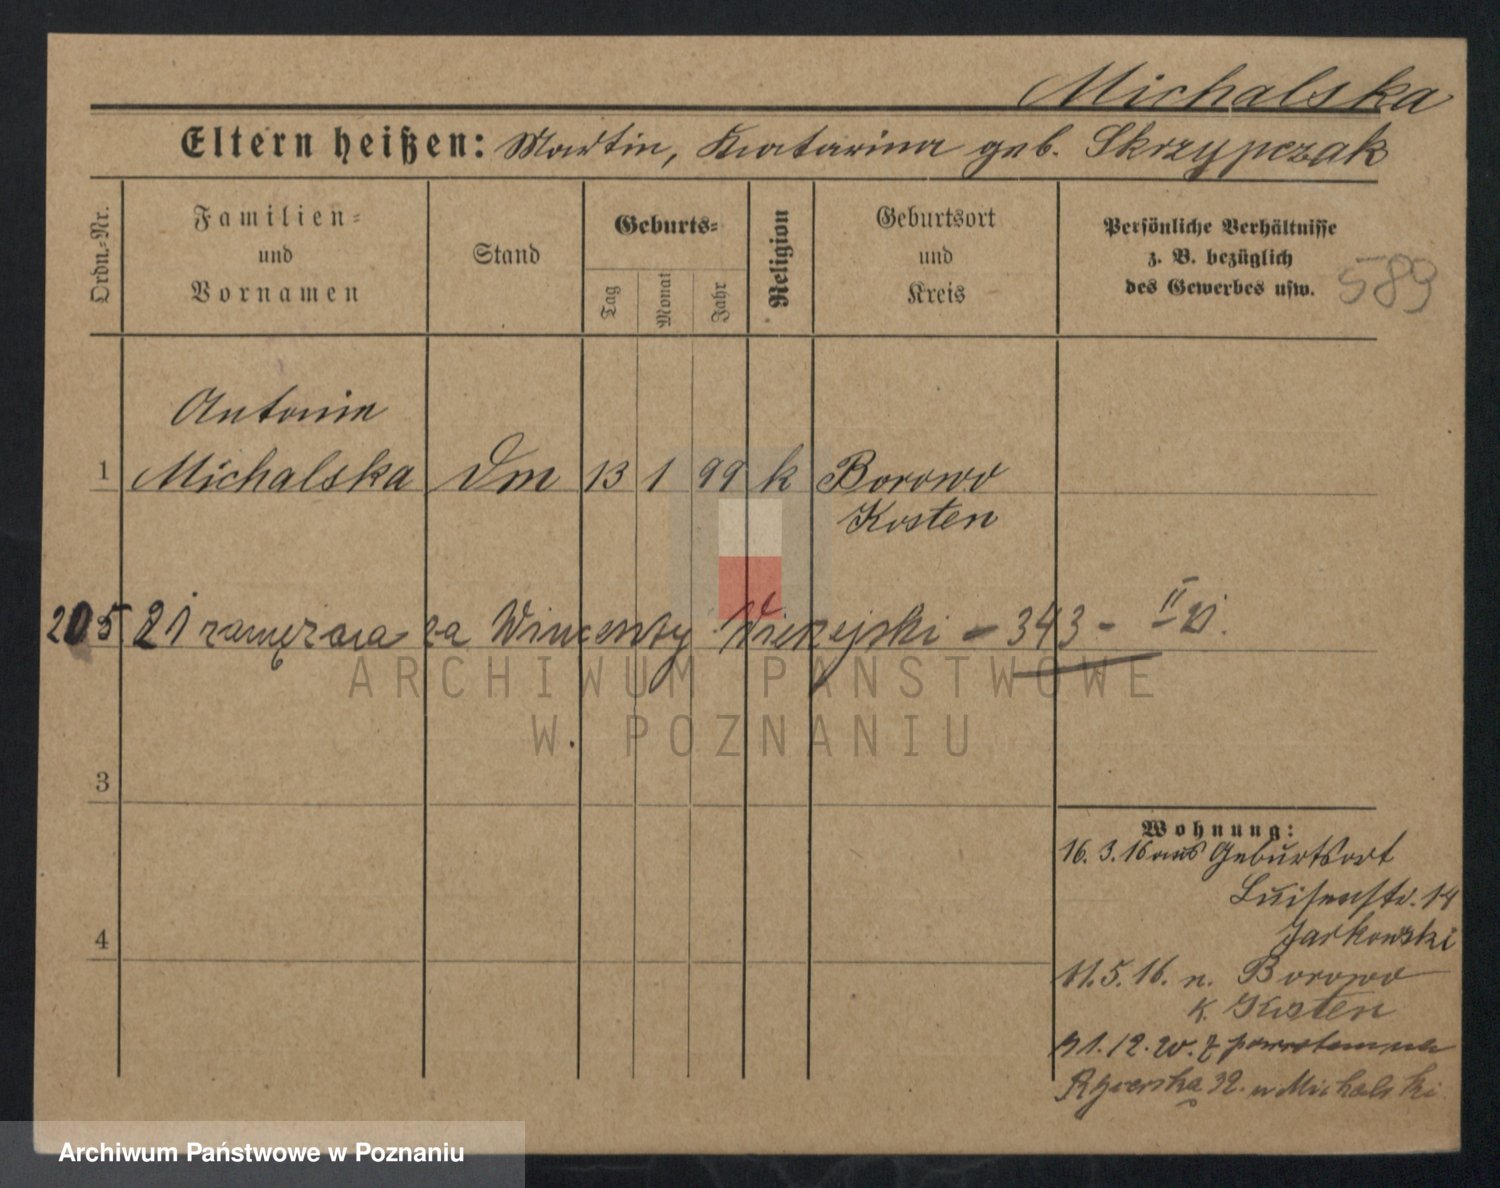 Michalska
Eltern heißen: Martin, Katarina geb. Skrzypczak
Ordn.-Nr.
Familien-
und
Vornamen
Stand
Geburts-
Tag
Monat
Jahr
Religion
Geburtsort
und
Kreis
Persönliche Verhältnisse
z. B. bezüglich
des Gewerbes usw.
589
Antonie
1 Michalska Dm 13 1 99 k Borowo
Kosten
20 5 21 zamężna za Wincenty - 343 - II
ARCHIWUM PAŃSTWOWE
W POZNANIU
3
4
Wohnung:
16. 3. 16 aus Geburtsort
Luisenstr. 14
Jarkowski
11. 5. 16. n. Borowo
K. Kosten
31. 12. 20. z
32. u Michalski
Archiwum Państwowe w Poznaniu